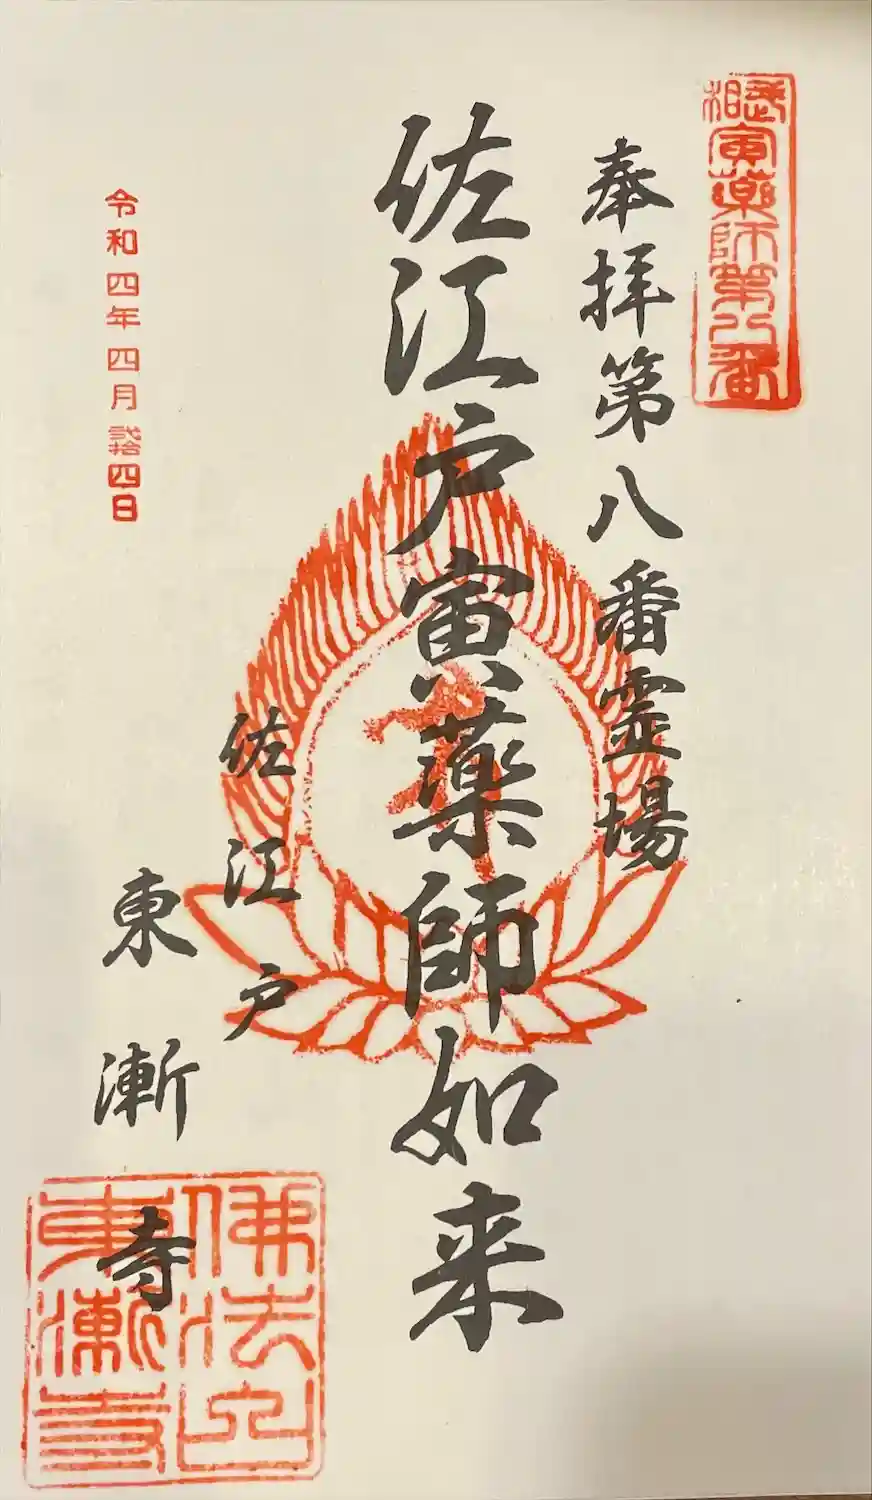 武相寅薬師第八番
奉拝第八番霊場
佐江戸寅薬師如来
佐江戸
東漸寺
令和四年四月弐拾四日
佛法山
東漸寺